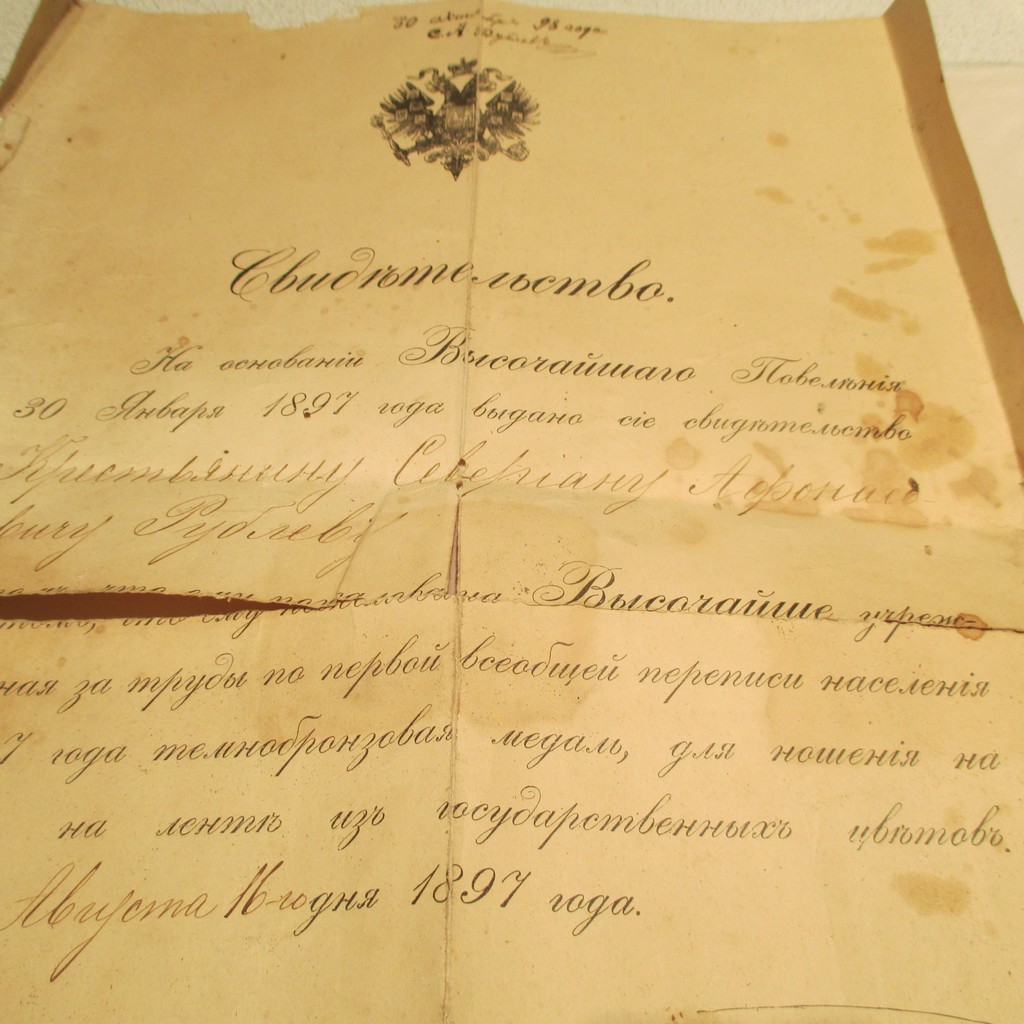 30 98 года
С. А
Свидѣтельство.
На основаніи Высочайшаго Повелѣнія
30 Января 1897 года выдано сіе свидѣтельство
Крестьянину Северіану Афонась-
вичу Рублеву
томъ, что ему пожалована Высочайше учреж-
ная за труды по первой всеобщей переписи населенія
7 года темнобронзовая медаль, для ношенія на
на лентѣ изъ государственныхъ цвѣтовъ.
Августа 16-го дня 1897 года.